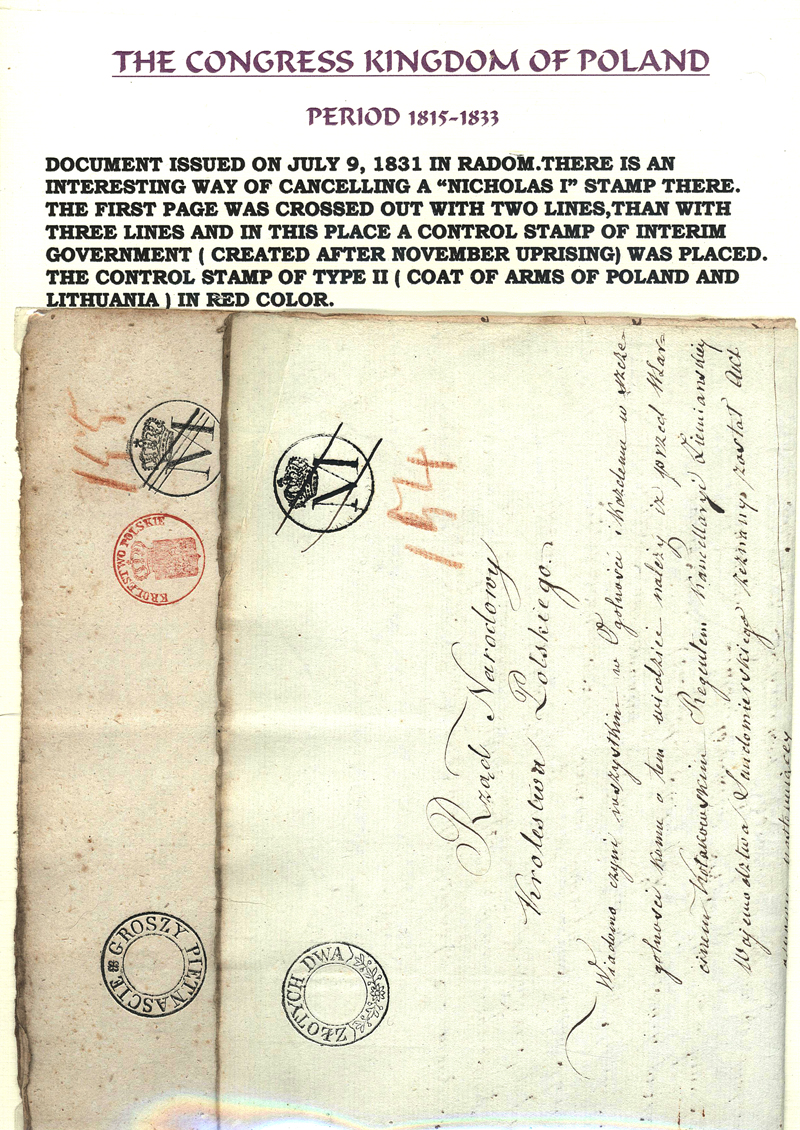 THE CONGRESS KINGDOM OF POLAND
PERIOD 1815-1833
DOCUMENT ISSUED ON JULY 9, 1831 IN RADOM.THERE IS AN
INTERESTING WAY OF CANCELLING A “NICHOLAS I” STAMP THERE.
THE FIRST PAGE WAS CROSSED OUT WITH TWO LINES,THAN WITH
THREE LINES AND IN THIS PLACE A CONTROL STAMP OF INTERIM
GOVERNMENT ( CREATED AFTER NOVEMBER UPRISING) WAS PLACED.
THE CONTROL STAMP OF TYPE II ( COAT OF ARMS OF POLAND AND
LITHUANIA ) IN RED COLOR.
155
NI
KROLESTWO POLSKIE
GROSZY PIETNASCIE
NI
154
ZŁOTYCH DWA
Rząd Narodowy
Krolestwa Polskiego.
Wiadomo czyni wszystkim w Ogolności i każdemu w szcze-
golności komu o tem wiedzieć należy iż przed
Regentem Kancellaryi Ziemianskiey
Wojewodztwa Sandomierskiego zeznany został Act